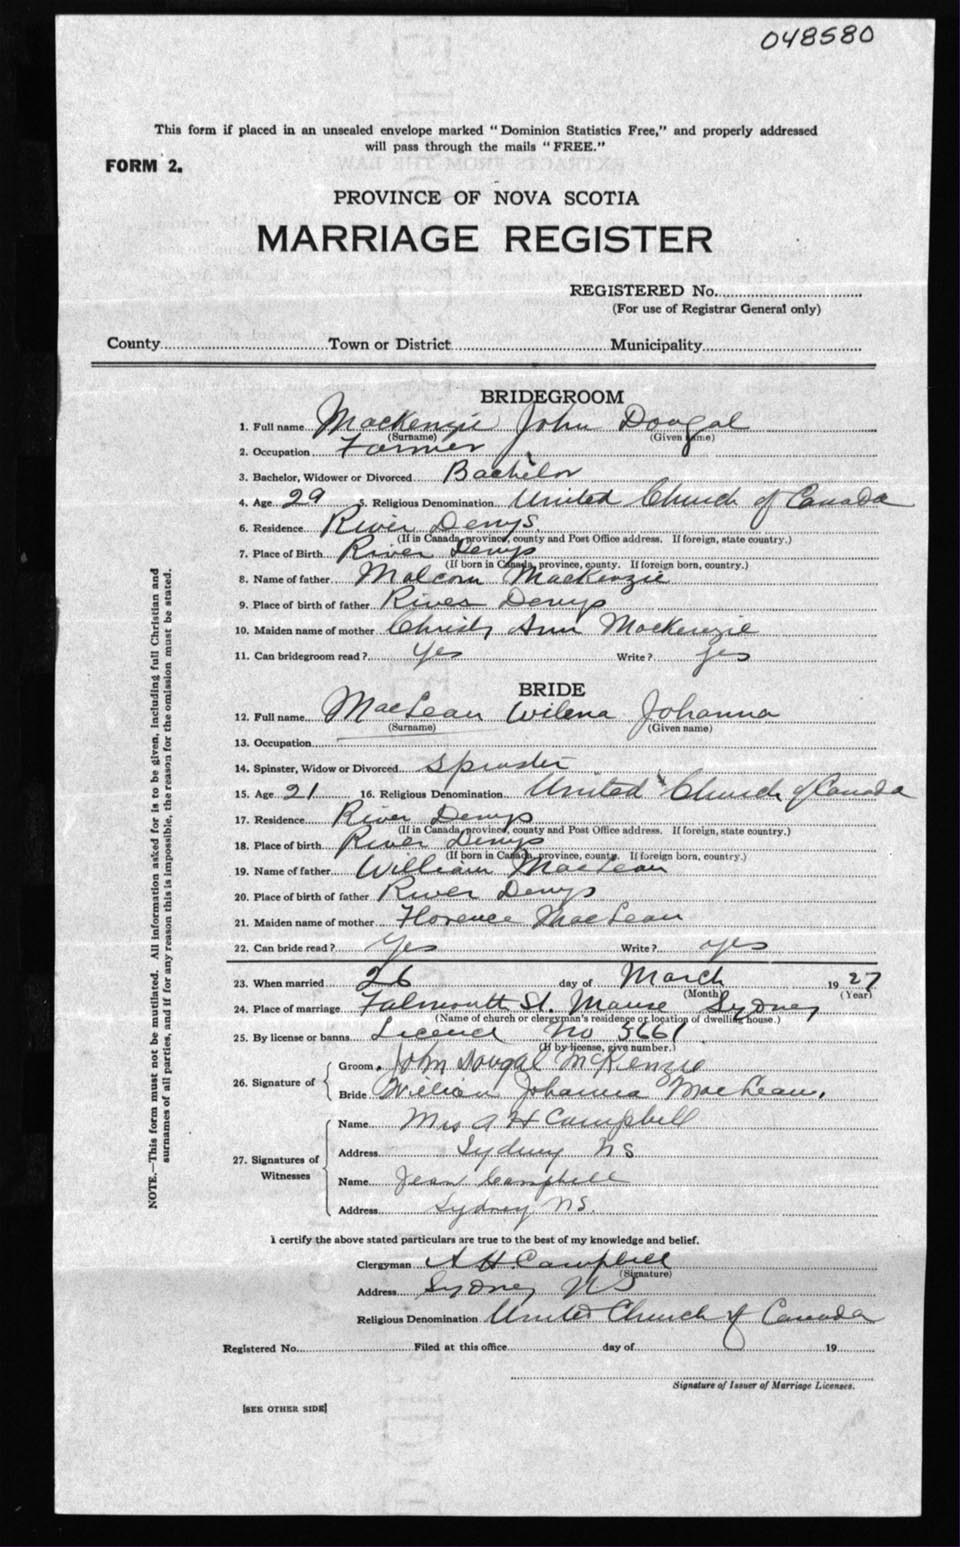 048580
This form if placed in an unsealed envelope marked "Dominion Statistics Free," and properly addressed
will pass through the mails "FREE."
FORM 2.
PROVINCE OF NOVA SCOTIA
MARRIAGE REGISTER
REGISTERED No.
(For use of Registrar General only)
County Town or District Municipality
BRIDEGROOM
1. Full name MacKenzie John Dougal
(Surname) (Given name)
2. Occupation Farmer
3. Bachelor, Widower or Divorced Bachelor
4. Age 29 5. Religious Denomination United Church of Canada
6. Residence River Denys
(If in Canada, province, county and Post Office address. If foreign, state country.)
7. Place of Birth River Denys
(If born in Canada, province, county. If foreign born, country.)
8. Name of father Malcom MacKenzie
9. Place of birth of father River Denys
10. Maiden name of mother Christy Ann MacKenzie
11. Can bridegroom read? Yes Write? yes
BRIDE
12. Full name MacLean Wilena Johanna
(Surname) (Given name)
13. Occupation
14. Spinster, Widow or Divorced Spinster
15. Age 21 16. Religious Denomination United Church of Canada
17. Residence River Denys
(If in Canada, province, county and Post Office address. If foreign, state country.)
18. Place of birth River Denys
(If born in Canada, province, county. If foreign born, country.)
19. Name of father William MacLean
20. Place of birth of father River Denys
21. Maiden name of mother Florence MacLean
22. Can bride read? Yes Write? yes
23. When married 26 day of March 1927
(Month) (Year)
24. Place of marriage Falmouth St. Manse Sydney
(Name of church or clergyman's residence or location of dwelling house.)
25. By license or banns Licence No 5661
(If by license, give number.)
26. Signature of
Groom John Dougal McKenzie
Bride Johanna MacLean.
27. Signatures of Witnesses
Name Mrs A H Campbell
Address Sydney NS
Name Jean Campbell
Address Sydney NS.
I certify the above stated particulars are true to the best of my knowledge and belief.
Clergyman A H. Campbell
(Signature)
Address Sydney NS
Religious Denomination United Church of Canada
Registered No. Filed at this office day of 19
Signature of Issuer of Marriage Licenses.
[SEE OTHER SIDE]
NOTE.—This form must not be mutilated. All information asked for is to be given, including full Christian and
surnames of all parties, and if for any reason this is impossible, the reason for the omission must be stated.